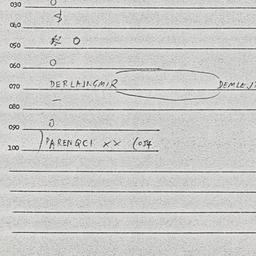 030 0
040 $
050 0
060 0
070 DERLAINGMIR DEMLE
080 —
090 0
100 PARENQCI XX (034